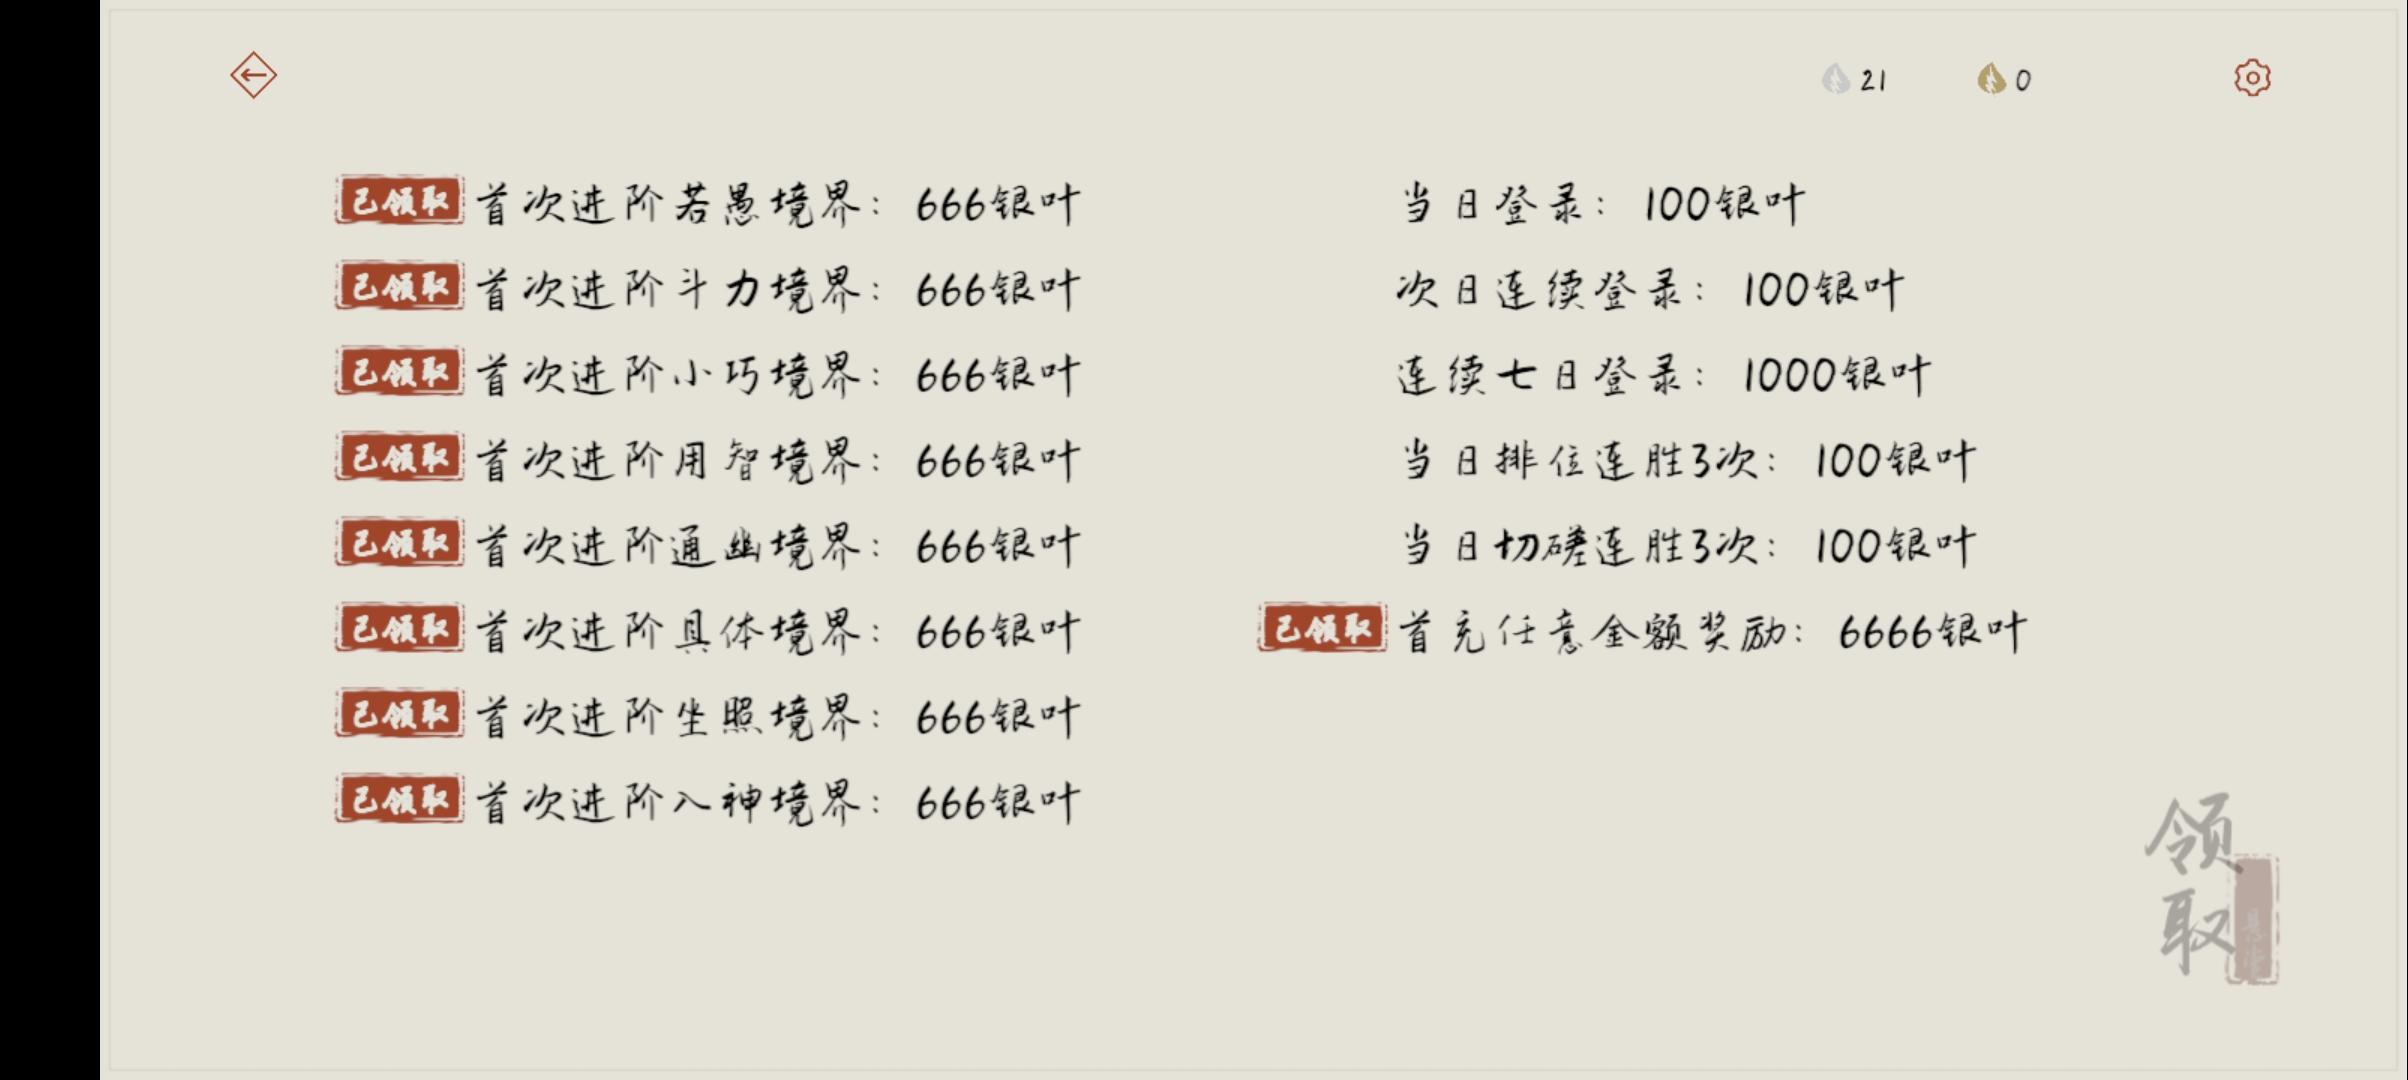 21
0
已领取 首次进阶若愚境界：666银叶
已领取 首次进阶斗力境界：666银叶
已领取 首次进阶小巧境界：666银叶
已领取 首次进阶用智境界：666银叶
已领取 首次进阶通幽境界：666银叶
已领取 首次进阶具体境界：666银叶
已领取 首次进阶坐照境界：666银叶
已领取 首次进阶入神境界：666银叶
当日登录：100银叶
次日连续登录：100银叶
连续七日登录：1000银叶
当日排位连胜3次：100银叶
当日切磋连胜3次：100银叶
已领取 首充任意金额奖励：6666银叶
领取